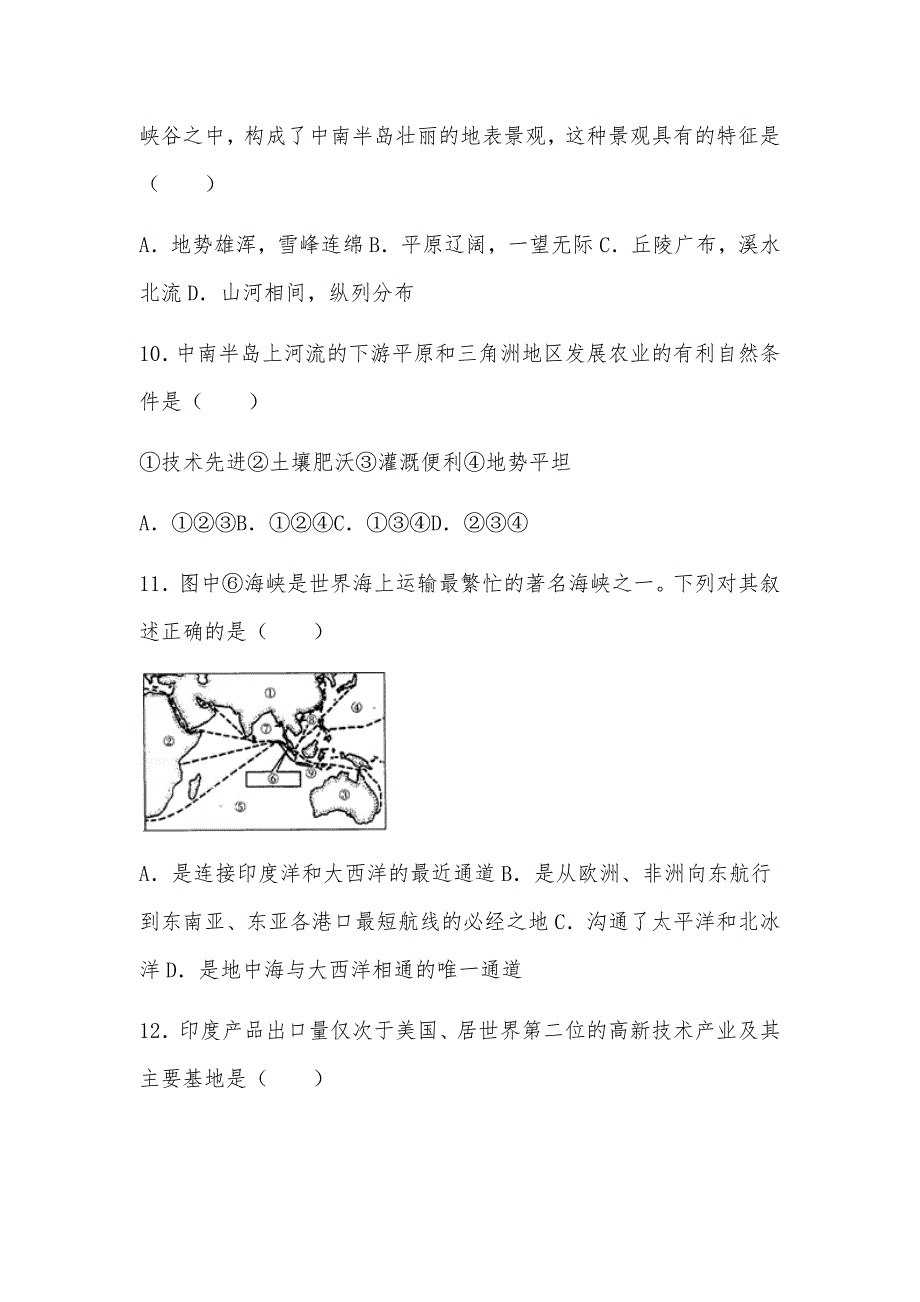 峡谷之中，构成了中南半岛壮丽的地表景观，这种景观具有的特征是
（　　）
A．地势雄浑，雪峰连绵B．平原辽阔，一望无际C．丘陵广布，溪水
北流D．山河相间，纵列分布
10．中南半岛上河流的下游平原和三角洲地区发展农业的有利自然条
件是（　　）
①技术先进②土壤肥沃③灌溉便利④地势平坦
A．①②③B．①②④C．①③④D．②③④
11．图中⑥海峡是世界海上运输最繁忙的著名海峡之一。下列对其叙
述正确的是（　　）
①
④
⑧
⑦
②
⑨
⑥
③
⑤
A．是连接印度洋和大西洋的最近通道B．是从欧洲、非洲向东航行
到东南亚、东亚各港口最短航线的必经之地C．沟通了太平洋和北冰
洋D．是地中海与大西洋相通的唯一通道
12．印度产品出口量仅次于美国、居世界第二位的高新技术产业及其
主要基地是（　　）